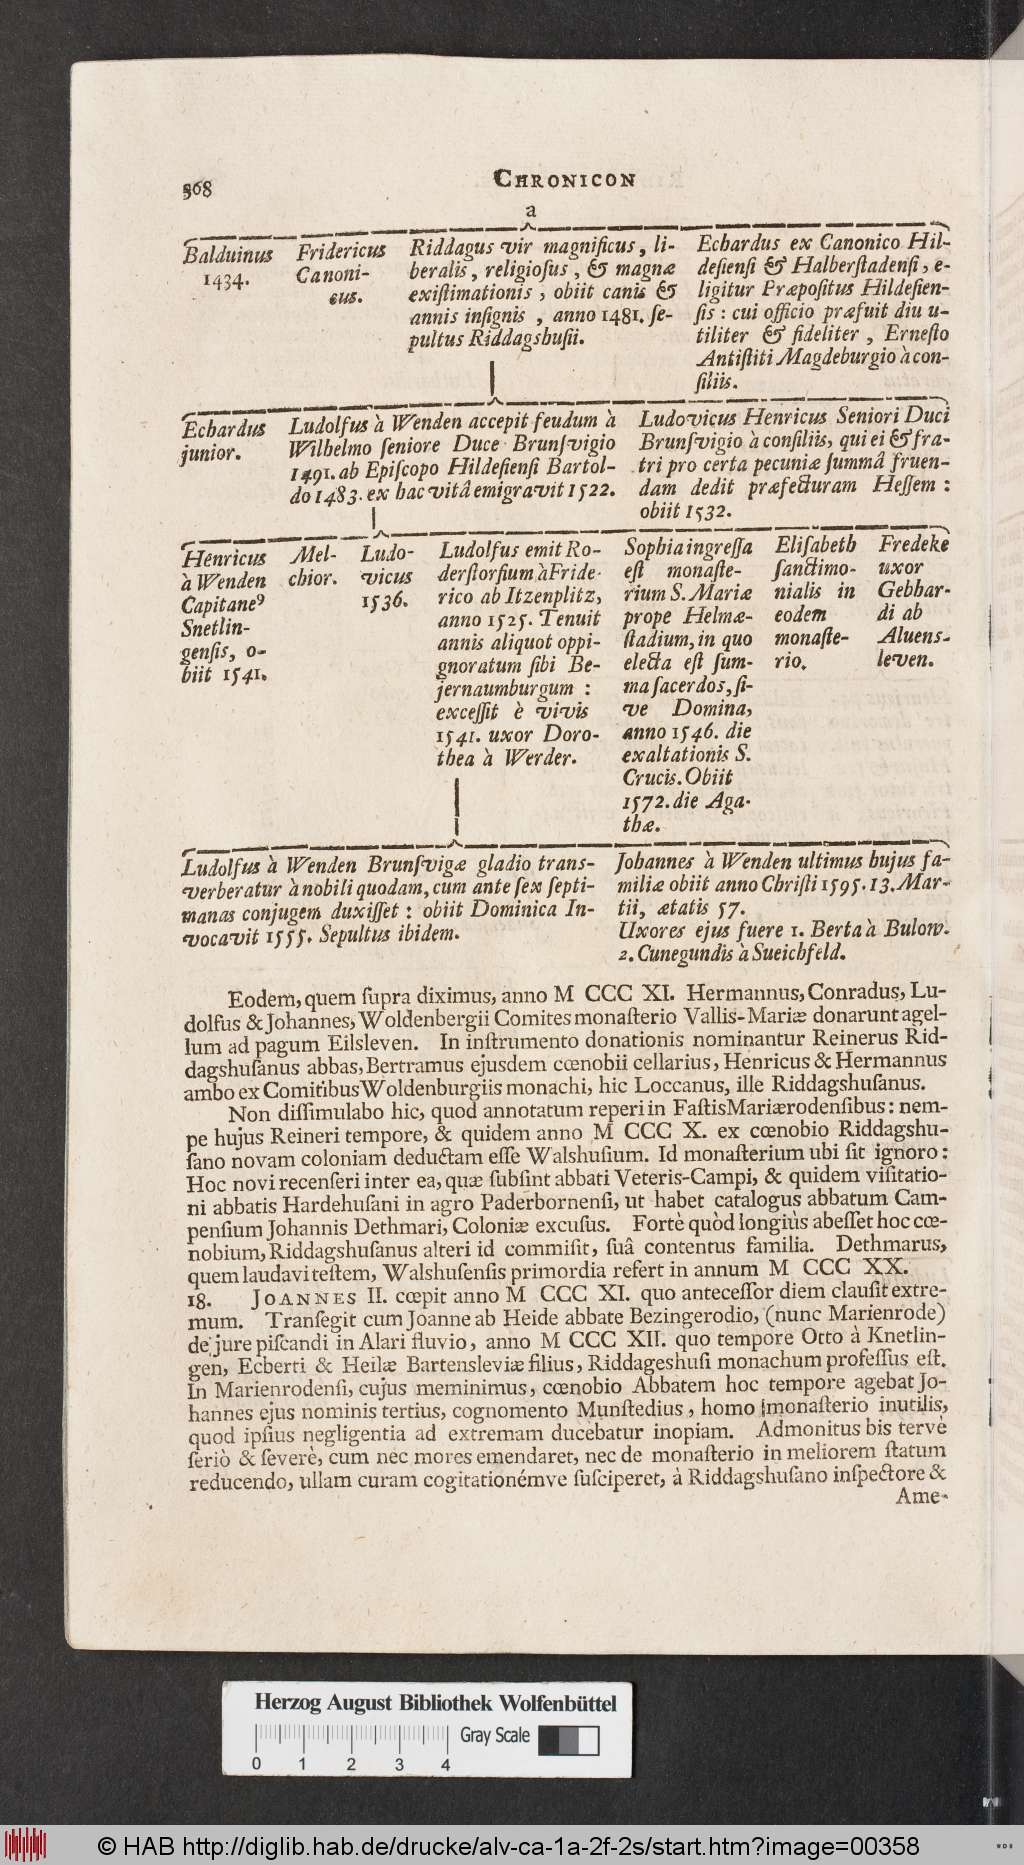 368
CHRONICON
a
Balduinus
1434.
Fridericus
Canoni-
cus.
Riddagus vir magnificus, li-
beralis, religioſus, & magnæ
exiſtimationis, obiit canis &
annis inſignis, anno 1481. ſe-
pultus Riddagshuſii.
Echardus ex Canonico Hil-
deſienſi & Halberſtadenſi, e-
ligitur Præpoſitus Hildeſien-
ſis: cui officio præfuit diu u-
tiliter & fideliter, Erneſto
Antiſtiti Magdeburgio à con-
ſiliis.
Echardus
junior.
Ludolfus à Wenden accepit feudum à
Wilhelmo ſeniore Duce Brunſvigio
1491. ab Epiſcopo Hildeſienſi Bartol-
do 1483. ex hac vitâ emigravit 1522.
Ludovicus Henricus Seniori Duci
Brunſvigio à conſiliis, qui ei & fra-
tri pro certa pecuniæ ſummâ fruen-
dam dedit præfecturam Heſſem:
obiit 1532.
Henricus
à Wenden
Capitaneꝰ
Snetlin-
genſis, o-
biit 1541.
Mel-
chior.
Ludo-
vicus
1536.
Ludolfus emit Ro-
derſtorfium à Fride-
rico ab Itzenplitz,
anno 1525. Tenuit
annis aliquot oppi-
gnoratum ſibi Be-
jernaumburgum:
exceſſit è vivis
1541. uxor Doro-
thea à Werder.
Sophia ingreſſa
eſt monaſte-
rium S. Mariæ
prope Helmæ-
ſtadium, in quo
electa eſt ſum-
ma ſacerdos, ſi-
ve Domina,
anno 1546. die
exaltationis S.
Crucis. Obiit
1572. die Aga-
thæ.
Eliſabeth
ſanctimo-
nialis in
eodem
monaſte-
rio.
Fredeke
uxor
Gebhar-
di ab
Aluens-
leven.
Ludolfus à Wenden Brunſvigæ gladio trans-
verberatur à nobili quodam, cum ante ſex ſepti-
manas conjugem duxiſſet: obiit Dominica In-
vocavit 1555. Sepultus ibidem.
Johannes à Wenden ultimus hujus fa-
miliæ obiit anno Chriſti 1595. 13. Mar-
tii, ætatis 57.
Uxores ejus fuere 1. Berta à Bulow.
2. Cunegundis à Sueichfeld.
Eodem, quem ſupra diximus, anno M CCC XI. Hermannus, Conradus, Lu-
dolfus & Johannes, Woldenbergii Comites monaſterio Vallis-Mariæ donarunt agel-
lum ad pagum Eilsleven. In inſtrumento donationis nominantur Reinerus Rid-
dagshuſanus abbas, Bertramus ejusdem cœnobii cellarius, Henricus & Hermannus
ambo ex Comitibus Woldenburgiis monachi, hic Loccanus, ille Riddagshuſanus.
Non diſſimulabo hic, quod annotatum reperi in Faſtis Mariærodenſibus: nem-
pe hujus Reineri tempore, & quidem anno M CCC X. ex cœnobio Riddagshu-
ſano novam coloniam deductam eſſe Walshuſium. Id monaſterium ubi ſit ignoro:
Hoc novi recenſeri inter ea, quæ ſubſint abbati Veteris-Campi, & quidem viſitatio-
ni abbatis Hardehuſani in agro Paderbornenſi, ut habet catalogus abbatum Cam-
penſium Johannis Dethmari, Coloniæ excuſus. Fortè quòd longiùs abeſſet hoc cœ-
nobium, Riddagshuſanus alteri id commiſit, ſuâ contentus familia. Dethmarus,
quem laudavi teſtem, Walshuſenſis primordia refert in annum M CCC XX.
18. JOANNES II. cœpit anno M CCC XI. quo anteceſſor diem clauſit extre-
mum. Tranſegit cum Joanne ab Heide abbate Bezingerodio, (nunc Marienrode)
de jure piſcandi in Alari fluvio, anno M CCC XII. quo tempore Otto à Knetlin-
gen, Ecberti & Heilæ Bartensleviæ filius, Riddageshuſi monachum profeſſus eſt.
In Marienrodenſi, cujus meminimus, cœnobio Abbatem hoc tempore agebat Jo-
hannes ejus nominis tertius, cognomento Munſtedius, homo monaſterio inutilis,
quod ipſius negligentia ad extremam ducebatur inopiam. Admonitus bis tervè
ſeriò & ſeverè, cum nec mores emendaret, nec de monaſterio in meliorem ſtatum
reducendo, ullam curam cogitationémve ſuſciperet, à Riddagshuſano inſpectore &
Ame-
Herzog August Bibliothek Wolfenbüttel
Gray Scale
0 1 2 3 4
© HAB http://diglib.hab.de/drucke/alv-ca-1a-2f-2s/start.htm?image=00358